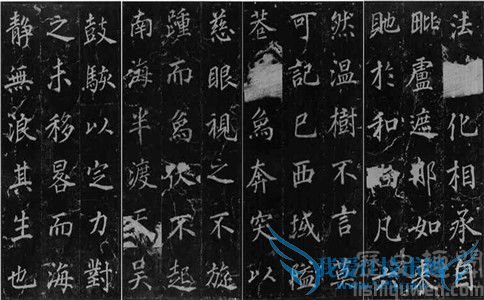 法化相承自
毗盧遮那如來
貤於和尚凡
然溫樹不言莫
可記已西域隘
巷象奔突以
慈眼視之不旋
踵而象伏不起
南海半渡天吳
鼓駭以定力對
之未移晷而海
靜無浪其生也